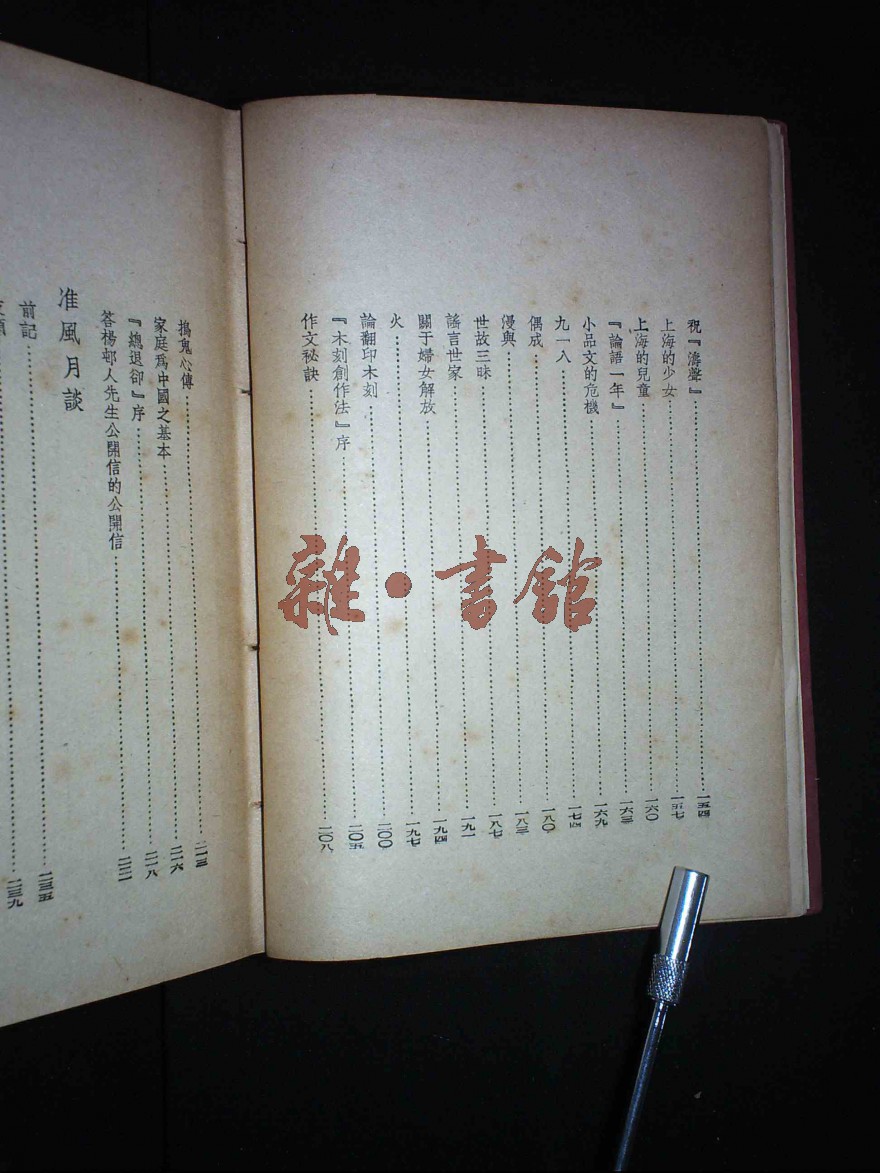 祝『濤聲』……一五四
上海的少女……一五七
上海的兒童……一六〇
『論語一年』……一六三
小品文的危機……一六九
九一八……一七四
偶成……一八〇
漫與……一八三
世故三昧……一八七
謠言世家……一九一
關于婦女解放……一九四
火……一九七
論翻印木刻……二〇〇
『木刻創作法』序……二〇五
作文秘訣……二〇八
搗鬼心傳……二一三
家庭爲中國之基本……二一六
『總退卻』序……二一八
答楊邨人先生公開信的公開信……二二一
准風月談
前記……二三五
……二三九
雜·書館